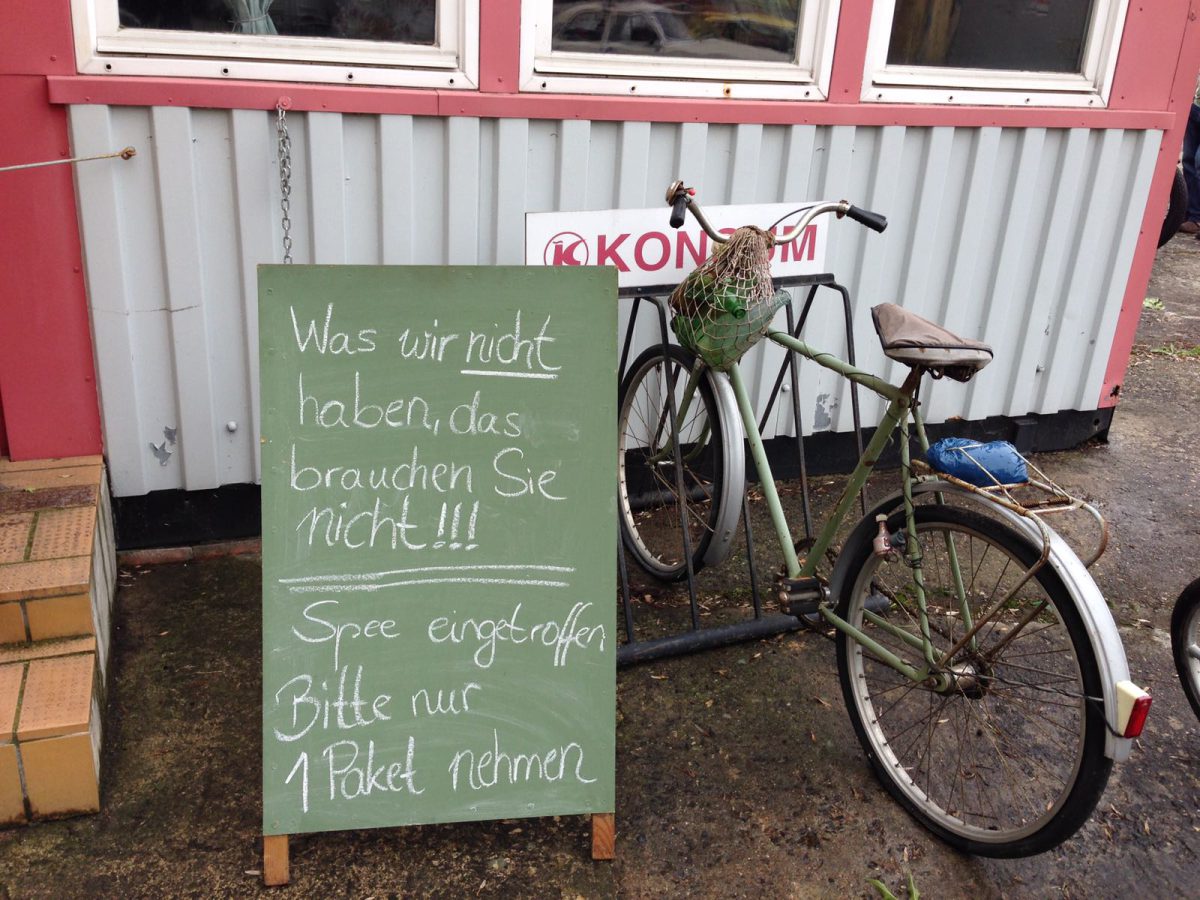 KONSUM
Was wir nicht
haben, das
brauchen Sie
nicht!!!
Spee eingetroffen
Bitte nur
1 Paket nehmen